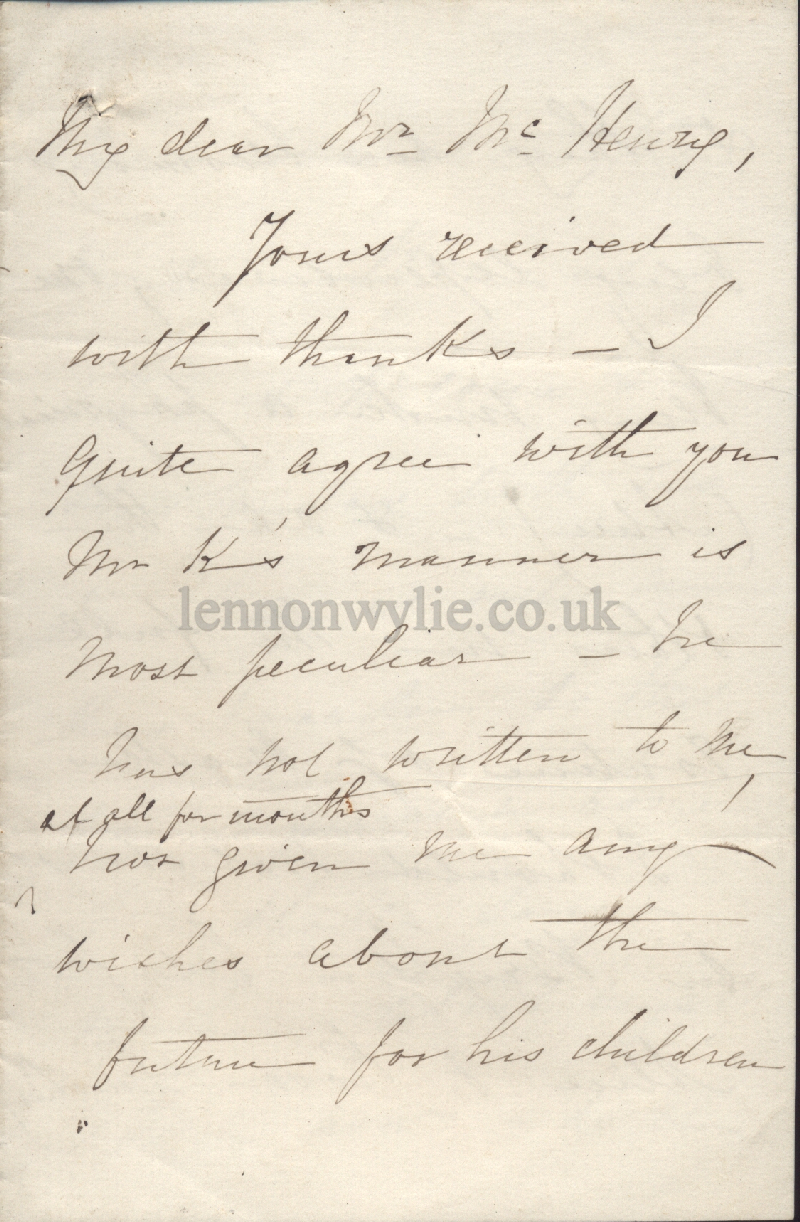 My dear Mr McHenry,
Yours received
with thanks – I
quite agree with you
Mr K's manner is
most peculiar – he
lennonwylie.co.uk
has not written to me,
at all for months
nor given me any
wishes about the
future for his children